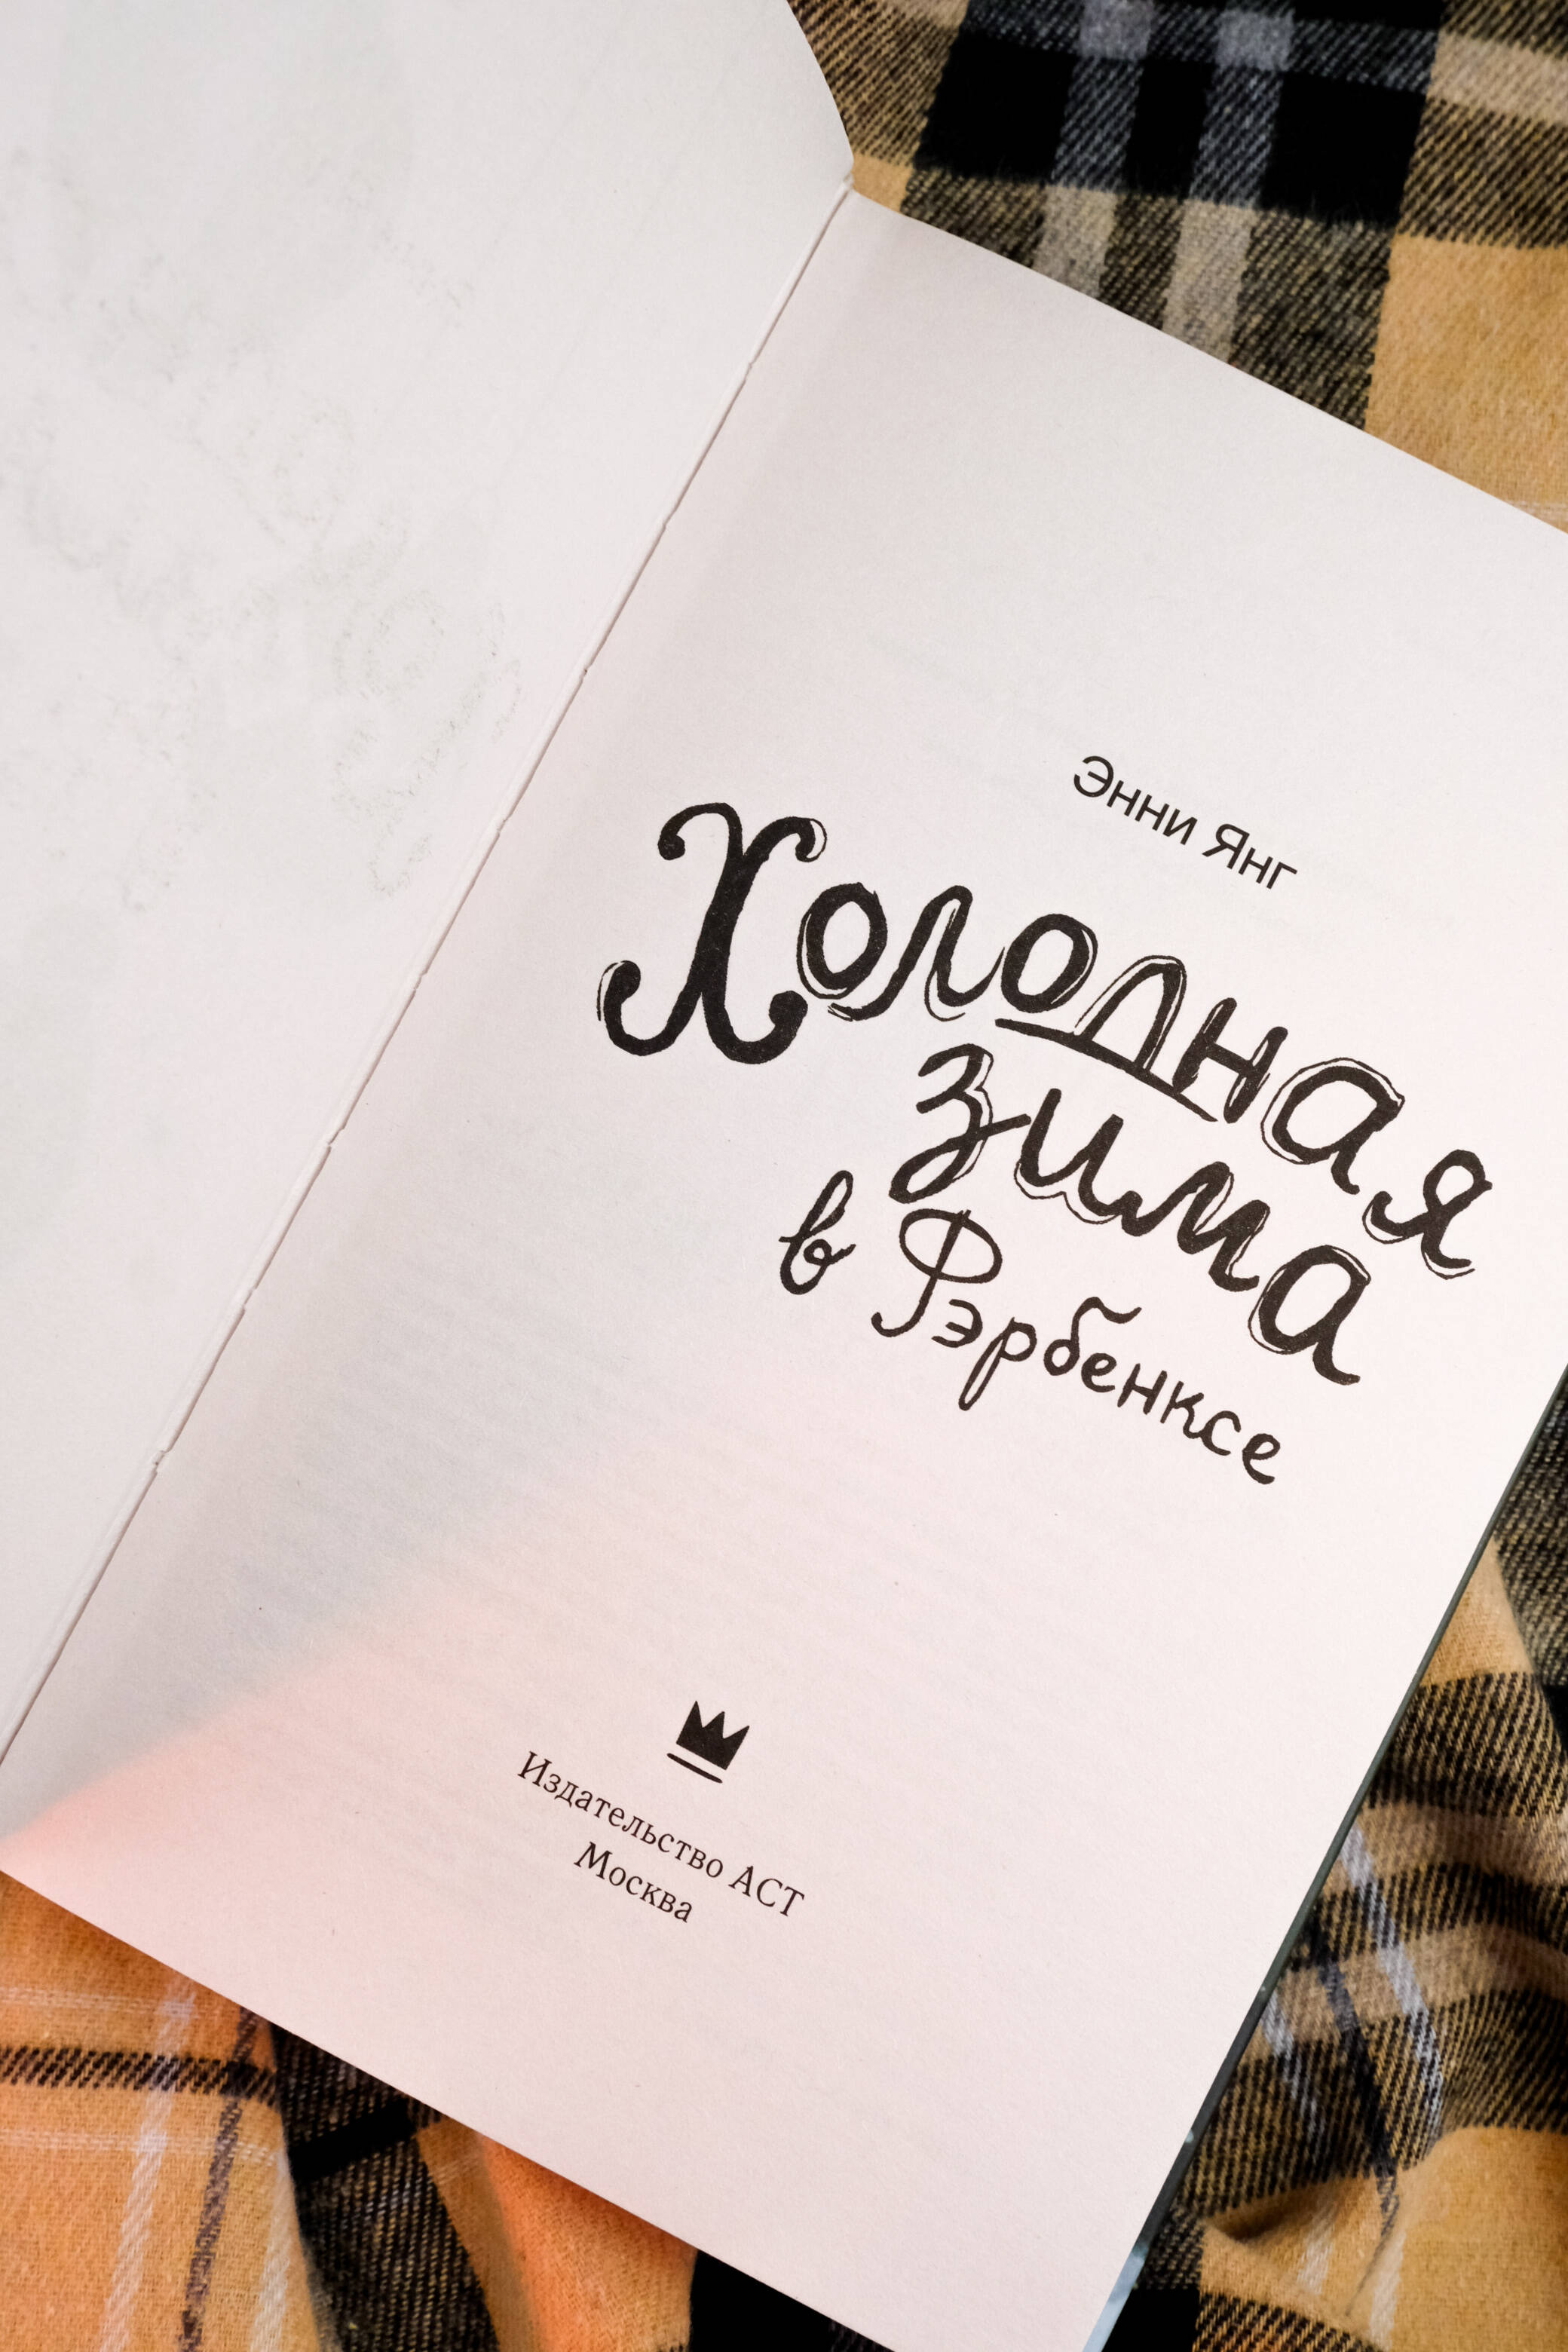 Энни Янг
Холодная
зима
в Фэрбенксе
Издательство АСТ
Москва